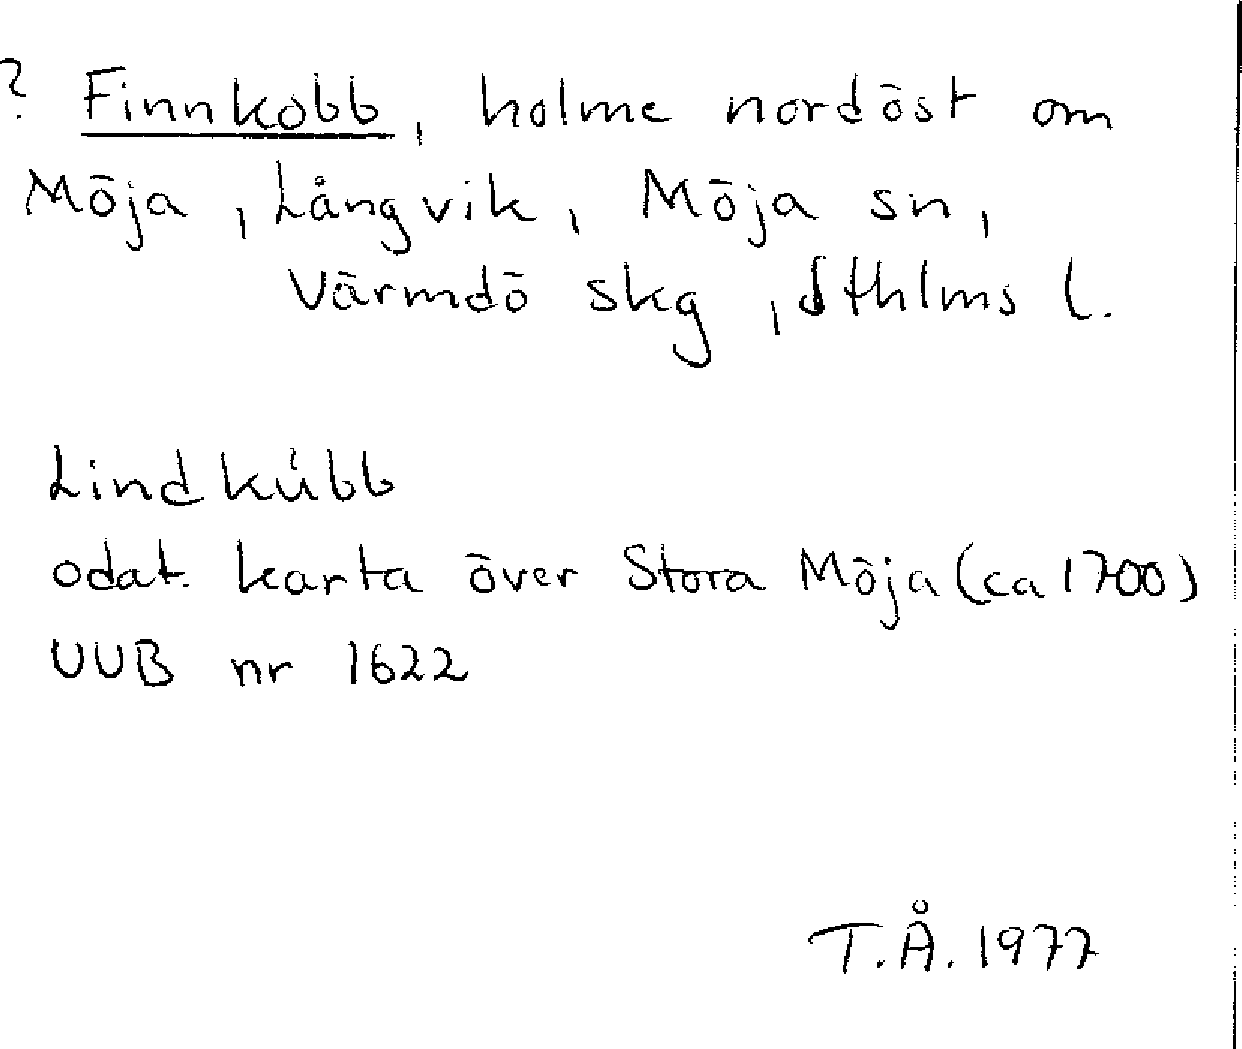 ? Finnkobb, holme nordöst om
Möja, Långvik, Möja sn,
Värmdö skg, Sthlms l.
Lindkúbb
odat. karta över Stora Möja (ca 1700)
UUB nr 1622
T.Å. 1977